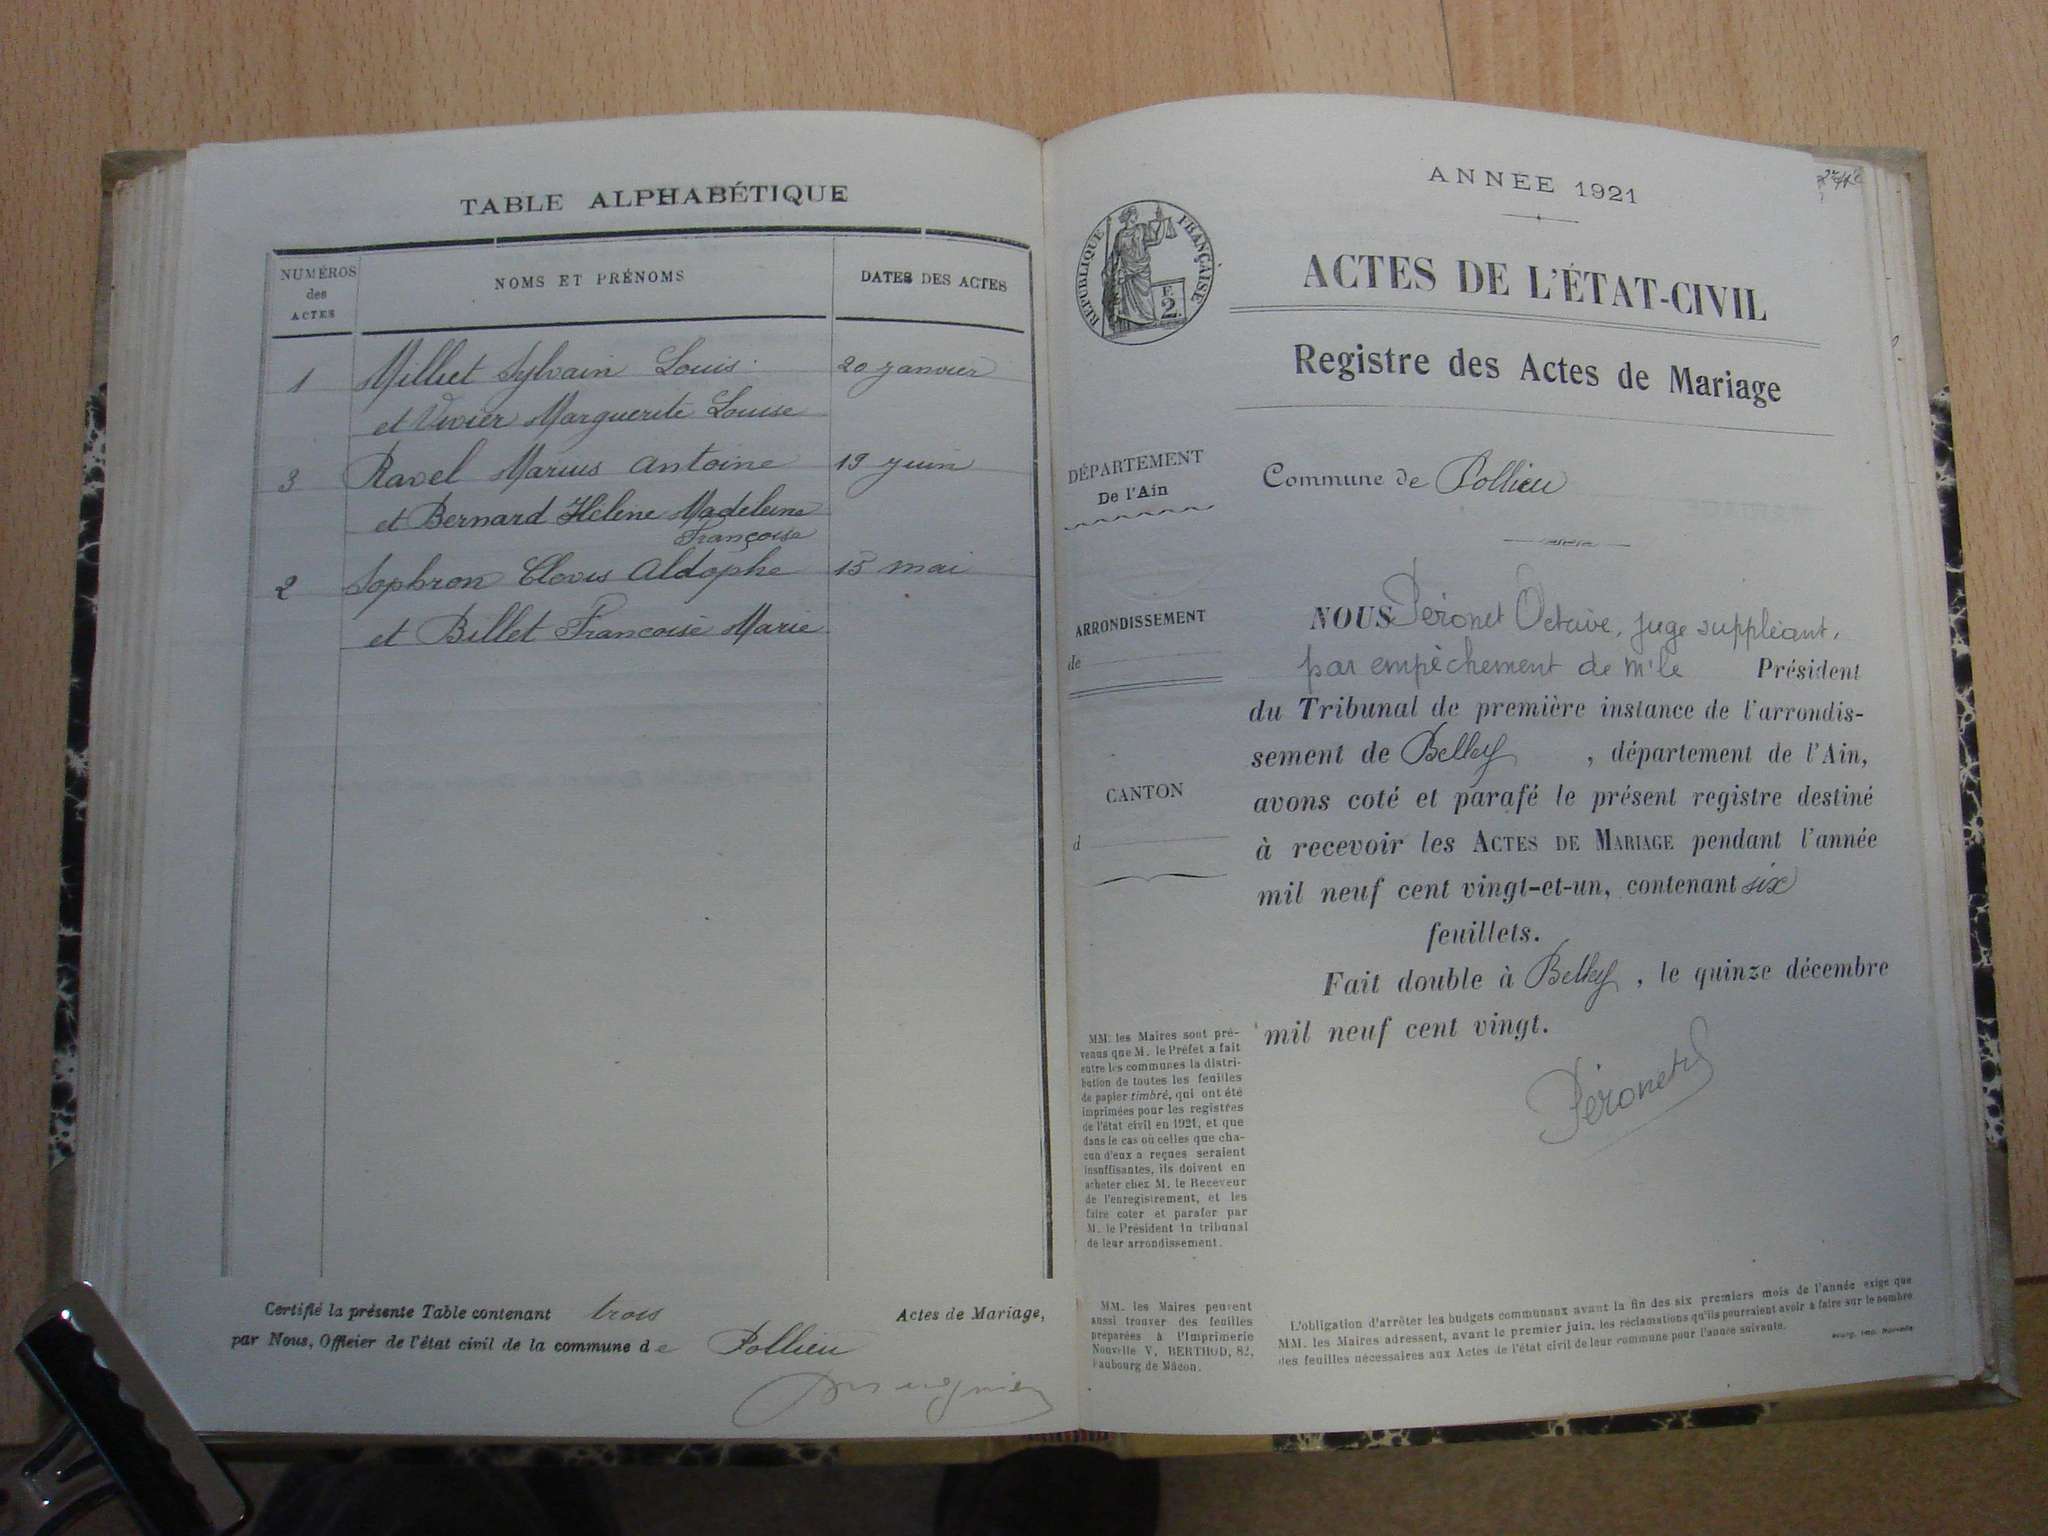 TABLE ALPHABÉTIQUE
NUMÉROS
des
ACTES
NOMS ET PRÉNOMS
DATES DES ACTES
1 Milliet Sylvain Louis 20 janvier
et Vivier Marguerite Louise
3 Ravel Marius Antoine 19 juin
et Bernard Hélène Madeleine
Françoise
2 Sophron Clovis Aldophe 15 mai
et Billet Francoise Marie
Certifié la présente Table contenant trois Actes de Mariage,
par Nous, Officier de l'état civil de la commune de Pollieu
ANNÉE 1921
RÉPUBLIQUE FRANÇAISE
F.
2.
ACTES DE L'ÉTAT-CIVIL
Registre des Actes de Mariage
DÉPARTEMENT
De l'Ain
Commune de Pollieu
ARRONDISSEMENT
de
CANTON
d
NOUS Péronet Octave, juge suppléant,
par empêchement de Mr le Président
du Tribunal de première instance de l'arrondis-
sement de Belley, département de l'Ain,
avons coté et parafé le présent registre destiné
à recevoir les ACTES DE MARIAGE pendant l'année
mil neuf cent vingt-et-un, contenant six
feuillets.
Fait double à Belley, le quinze décembre
mil neuf cent vingt.
Péronet
MM. les Maires sont pré-
venus que M. le Préfet a fait
entre les communes la distri-
bution de toutes les feuilles
de papier timbré, qui ont été
imprimées pour les registres
de l'état civil en 1921, et que
dans le cas où celles que cha-
cun d'eux a reçues seraient
insuffisantes, ils doivent en
acheter chez M. le Receveur
de l'enregistrement, et les
faire coter et parafer par
M. le Président du tribunal
de leur arrondissement.
MM. les Maires peuvent
aussi trouver des feuilles
préparées à l'Imprimerie
Nouvelle V. BERTHOD, 82,
Faubourg de Mâcon.
L'obligation d'arrêter les budgets communaux avant la fin des six premiers mois de l'année exige que
MM. les Maires adressent, avant le premier juin, les réclamations qu'ils pourraient avoir à faire sur le nombre
des feuilles nécessaires aux Actes de l'état civil de leur commune pour l'année suivante.
Bourg, Imp. Nouvelle